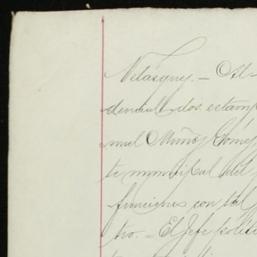 Velasquez.— El
demas dos estam
nuel Muñoz Gome
te municipal del
funciones con tal
tro.— El Jefe polit